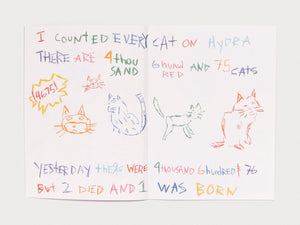 I COUNTED EVERY CAT ON HYDRA
THERE ARE 4 thou SAND 6 hund RED AND 75 CATS
4675!
YESTERDAY there WERE 4 THOUSAND 6 hundred & 76
But 2 DIED AND 1 WAS BORN